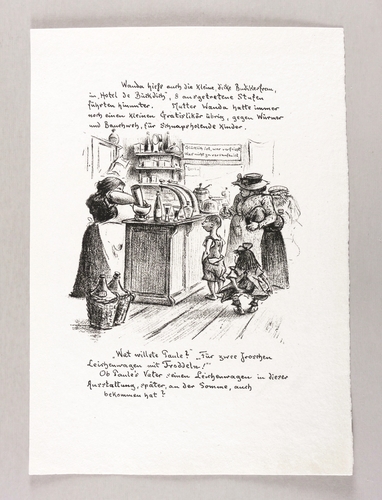 Wanda hieß auch die kleine, dicke Budikerfrau,
in „Hotel de Bückdich", 8 ausgetretene Stufen
führten hinunter. Mutter Wanda hatte immer
noch einen kleinen Gratislikör übrig, gegen Würmer
und Bauchweh, für Schnapsholende Kinder.
Glücklich ist, wer verfrisst
Was nicht zu versaufen ist
„Wat willste Paule?" „Für zwee Froschen
Leichenwagen mit Troddeln!"
Ob Paule's Vater seinen Leichenwagen in dieser
Ausstattung, später, an der Somme, auch
bekommen hat?